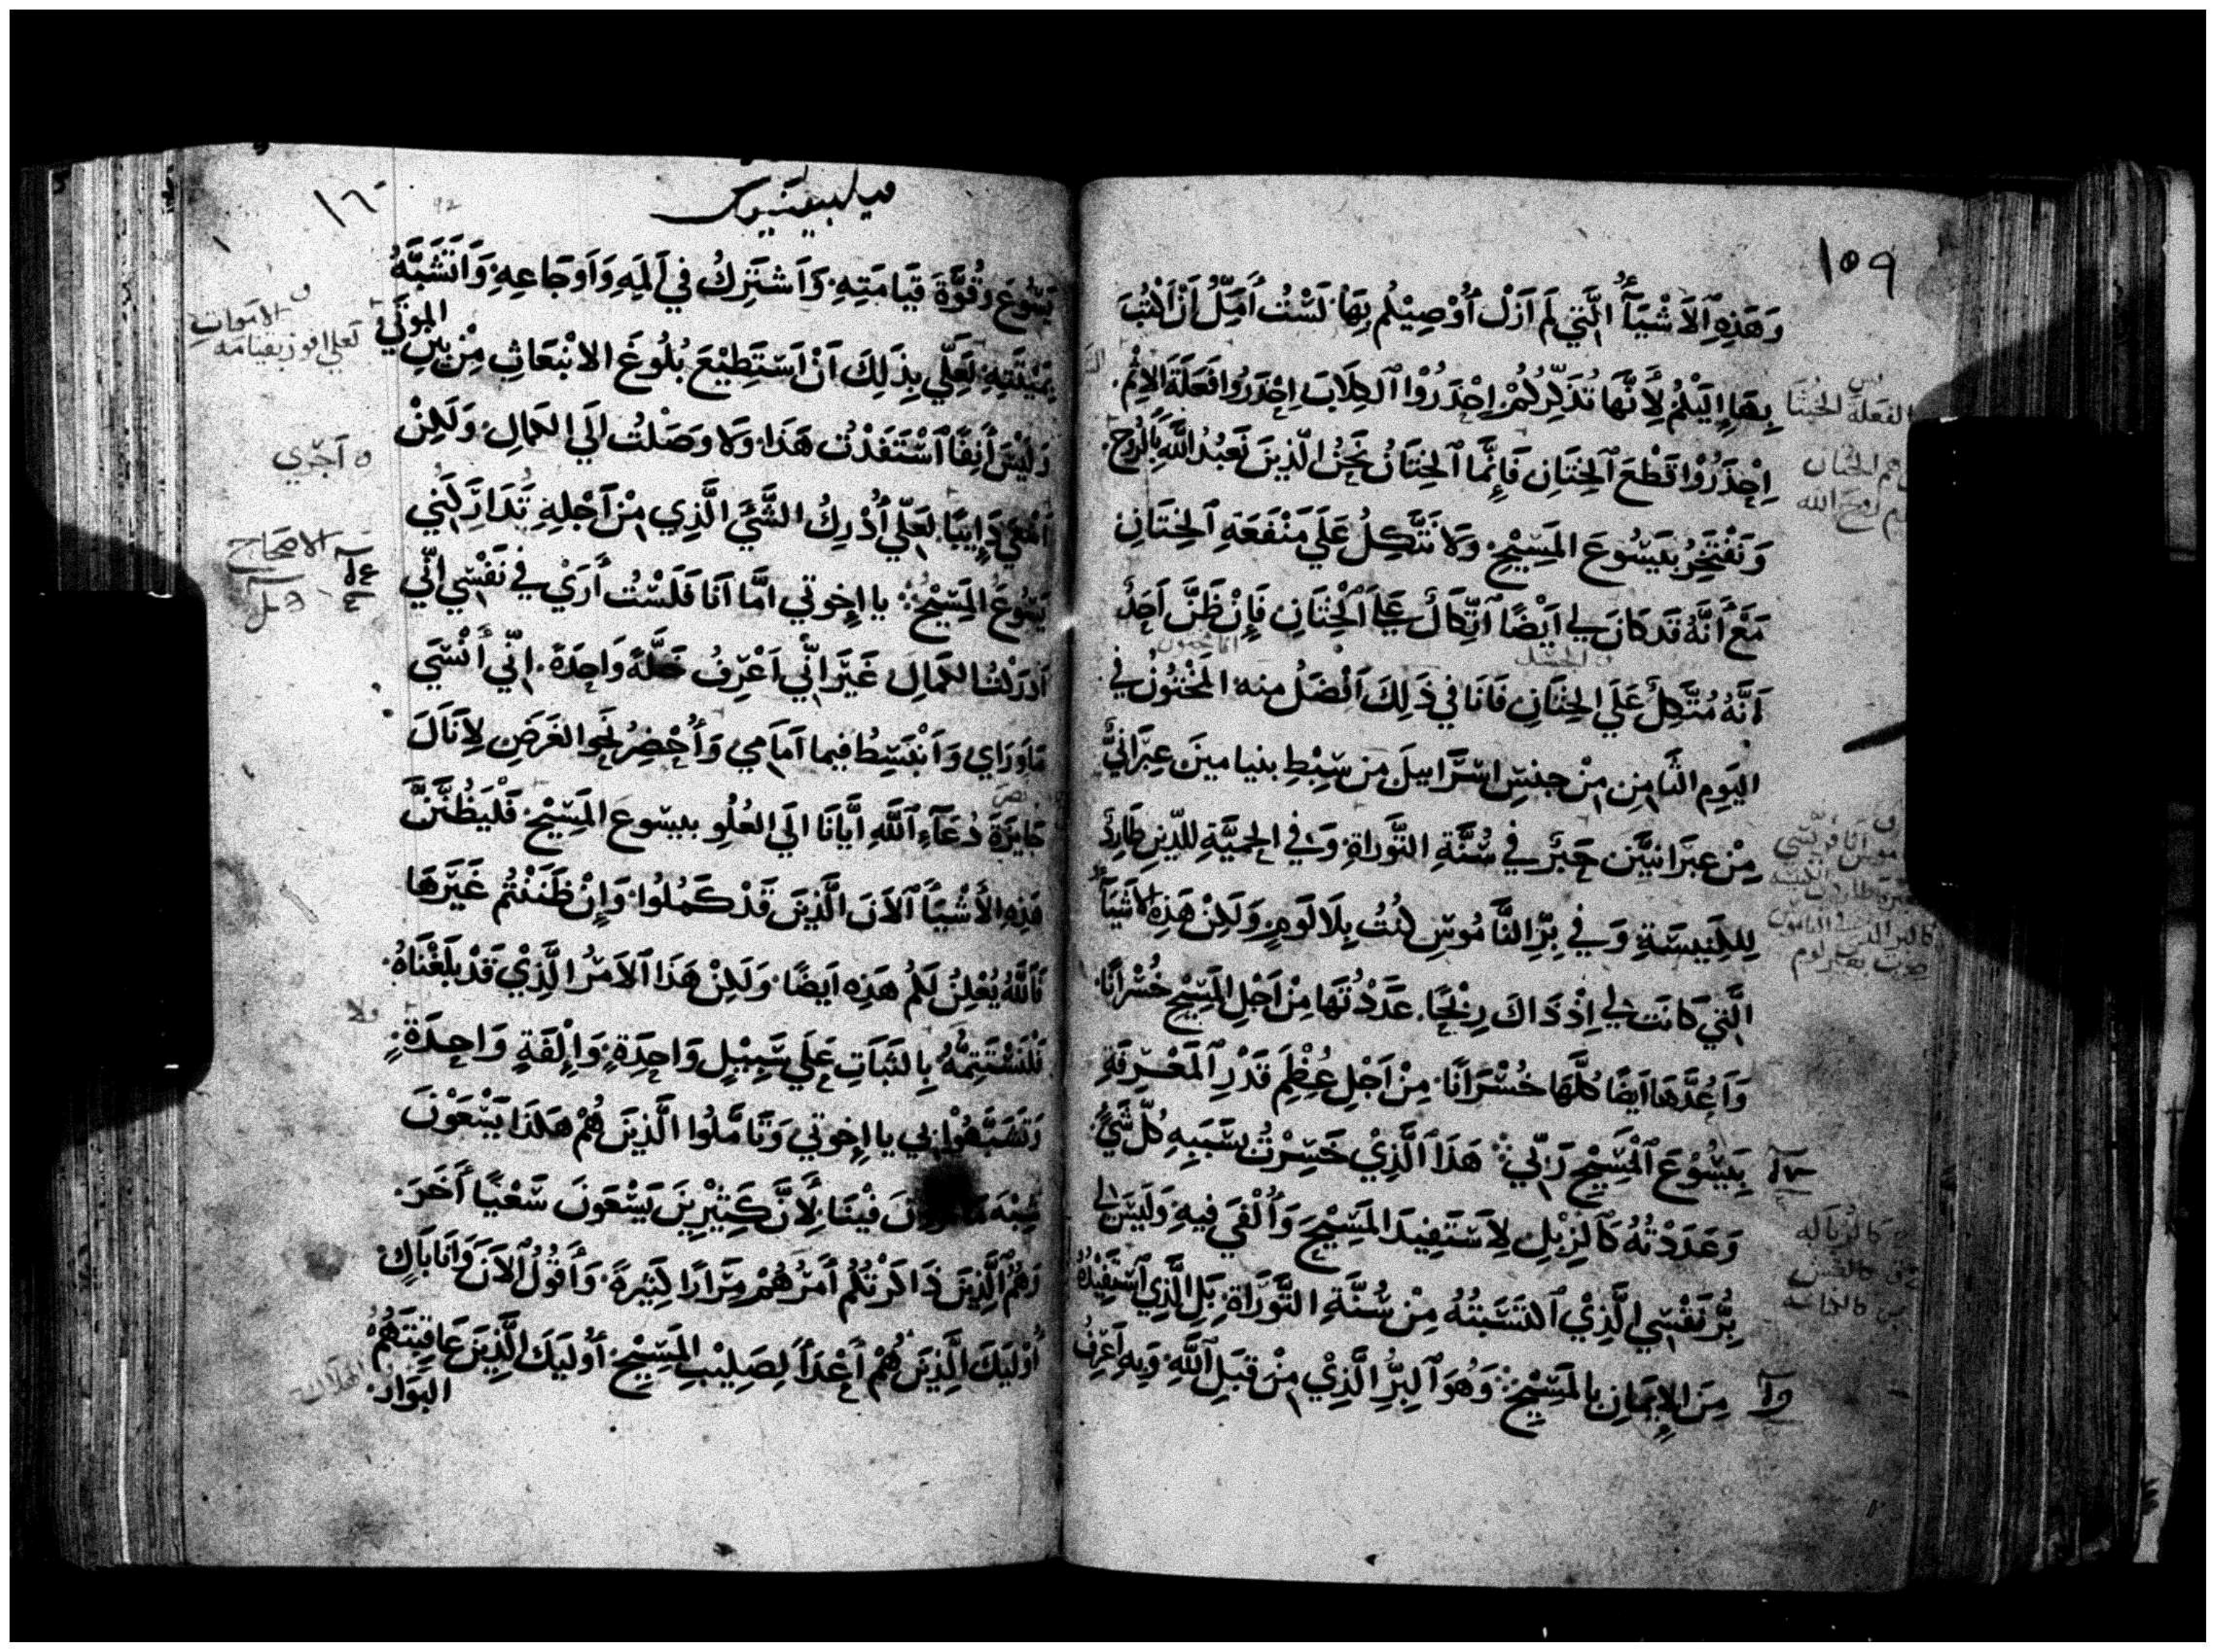 ١٥٩
وَهَذِهِ ٱلْاَشْيَآُ الَّتِي لَم اَزَلْ أُوْصِيْكُم بِهَا لَسْتُ أَمَلُّ اَنْ اَكْتُبَ
بِهَا إِلَيْكُمْ لِأَنَّهَا تُذَكِّرُكُمْ اِحْذَرُوْا ٱلكِلَابَ اِحْذَرُوا فَعَلَةَ الاِثْمِ
اِحْذَرُوْا قَطْعَ ٱلخِتَانِ فَإِنَّمَا ٱلخِتَانُ نَحْنُ الَّذِينَ نَعْبُدُ اللَّهَ بِالرُوحِ
وَنَفْتَخِرُ بِيَسُوعَ المَسِيْحِ وَلَا نَتَّكِلُ عَلَي مَنْفَعَةِ ٱلخِتَانِ
مَعْ أَنَّهُ قَد كَانَ لِي اَيْضًا ٱتِّكَالٌ عَلَي ٱلْخِتَانِ فَإِنْ ظَنَّ اَحَدٌ
اَنَّهُ مُتَّكِلٌ عَلَي الخِتَانِ فَانَا فِي ذَلِكَ اَفْضَلُ مِنهُ المَخْتُوْنُ فِي
اليَومِ الثَّامِنِ مِنْ جِنسِ اسْرَاييلَ مِن سِبْطِ بنيامينَ عِبْرَانِيٌّ
مِنْ عِبرَانِيِّينَ حَبْرٌ فِي سُنَّةِ التَّورَاةِ وَفِي الحِمِيَّةِ لِلدِّينِ طَارِدٌ
لِلكَنِيسَةِ وَفِي بِرِّ النَّامُوسِ كُنْتُ بِلَا لَومٍ وَلَكِنْ هَذِهِ الاَشْيَآُ
الَّتِي كَانَت لِي اِذْ ذَاكَ رِبْحًا عَدَدْتُهَا مِنْ اَجْلِ المَسِيْحِ خُسْرَانًا
وَاَعُدُّهَا اَيضًا كُلَّهَا خُسْرَانًا مِنْ اَجْلِ عِظَمِ قَدْرِ ٱلمَعْرِفَةِ
بِيَسُوْعَ ٱلْمَسِيْحِ رَبِّي هَذَا ٱلَّذِيْ خَسِرْتُ بِسَبَبِهِ كُلَّ شَيْءٍ
وَعَدَدْتُهُ كَٱلزِبْلِ لِاَسْتَفِيدَ المَسِيْحَ وَأُلْفَي فِيهِ وَلَيْسَ لِي
بِرُّ نَفْسِي الَّذِيْ ٱكْتَسَبْتُهُ مِنْ سُنَّةِ التَّوْرَاةِ بَلِ الَّذِي ٱسْتَفِيْدُهُ
مِنَ الاِيمَانِ بِالمَسِيْحِ وَهُوَ ٱلبِرُّ الَّذِيْ مِنْ قِبَلِ ٱللَّهِ وَبِهِ اَعْرِفُ
كالزباله
١٦٠
فيلبيسيوس
يَسُوعَ وَقُوَّةَ قِيَامَتِهِ وَاَشتَرِكُ فِي اَلَمِهِ وَاَوجَاعِهِ وَاَتَشَبَّهُ
بِمَيْتَتِهِ لَعَلِّي بِذَلِكَ اَنْ اَسْتَطِيْعَ بُلُوغَ الانْبِعَاثِ مِنْ بَيْنِ
المَوتَي
وَلَيْسَ أَنِفًا ٱسْتَفَدْتُ هَذَا وَلَا وَصَلْتُ اِلَي الكَمَالِ وَلَكِنْ
اَسْعَي دَايِبًا لَعَلِّي أُدْرِكُ الشَّيْءَ الَّذِي مِنْ اَجْلِهِ تَدَارَكَنِي
يَسُوعُ المَسِيْحُ يا إِخوَتِي اَمَّا اَنَا فَلَسْتُ أَرَيْ فِي نَفْسِي اَنِّي
اَدرَكْتُ الكَمَالَ غَيْرَ اَنِّي اَعْرِفُ خَلَّةً وَاحِدَةً اِنِّي أَنْسَي
مَا وَرَاي وَاَنْبَسِطُ فِيما اَمَامِي وَأُحْضِرُ نَحوَ الغَرَضِ لِاَنَالَ
جَايِزَةَ دُعَآءِ ٱللَّهِ اِيَّانَا اِلَي العُلُوِ بيسوعَ المَسِيْحِ فَلْيَظُنَّنَّ
هَذِهِ الأَشْيَآَ ٱلاَنَ الَّذِينَ قَدْ كَمُلُوا وَإِنْ ظَنَنْتُم غَيْرَهَا
فَٱللَّهُ يُعْلِنُ لَكُم هَذِهِ اَيضًا وَلَكِنْ هَذَا ٱلاَمْرُ الَّذِيْ قَدْ بَلَغْنَاهُ
فَلنَسْتَتِمَّهُ بِالثَبَاتِ عَلَي سَبِيْلٍ وَاحِدَةٍ وَإِلْفَةٍ وَاحِدَةٍ
وَتَشَبَّهُوْا بِي يا اِخوَتِي وَتَامَّلُوا الَّذِينَ هُمْ هَكَذَا يَسْعَوْنَ
فِيْنَا لِأَنَّ كَثِيْرِينَ يَسْعَونَ سَعْيًا أَخَرَ
وَهُم ٱلَّذِينَ ذَاكَرْتُكُم اَمْرَهُمْ مِرَارًا كَثِيرَةً وَأَقُولُ ٱلاَنَ وَاَنَا بَاكٍ
أُوْلَيِكَ الَّذِينَ هُمْ أَعْدَآٌ لِصَلِيْبِ المَسِيْحِ أُولَيِكَ الَّذِينَ عَاقِبَتُهُمُ
البَوَارُ
الاموات
لعلي افوز بقيامه
اجري
الاصحاح
ولا
الهلاك